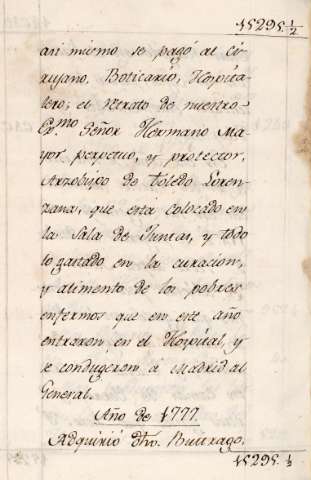 15295.½
asi mismo se pagó al Ci-
rujano, Boticario, Hospita-
lero; el retrato de nuestro
Ex.mo Señor Hermano Ma-
yor perpetuo, y protector,
Arzobispo de Toledo Loren-
zana, que está colocado en
la Sala de Juntas, y todo
lo gastado en la curacion,
y alimento de los pobres
enfermos que en este año
entraron en el Hospital, y
se condugeron á Madrid al
General.
Año de 1777.
Adquirió dho. Buitrago.
15295.½